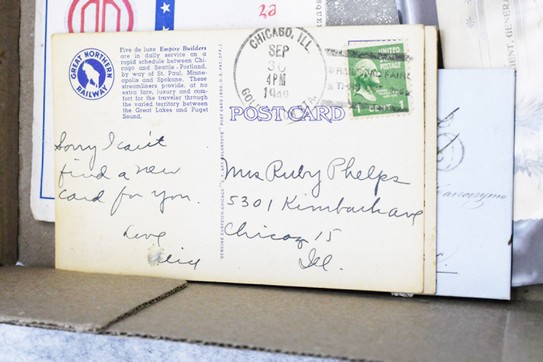 2a
GREAT NORTHERN
RAILWAY
Five de luxe Empire Builders
are in daily service on a
rapid schedule between Chi-
cago and Seattle - Portland,
by way of St. Paul, Minne-
apolis and Spokane. These
streamliners provide, at no
extra fare, luxury and com-
fort for the traveler through
the varied territory between
the Great Lakes and Puget
Sound.
CHICAGO, ILL
SEP
30
4PM
UNITED
1 CENT 1
POST CARD
Sorry I can't
find a new
card for you.
Love
Mrs Ruby Phelps
5301 Kimbark ave
Chicago 15
Ill.